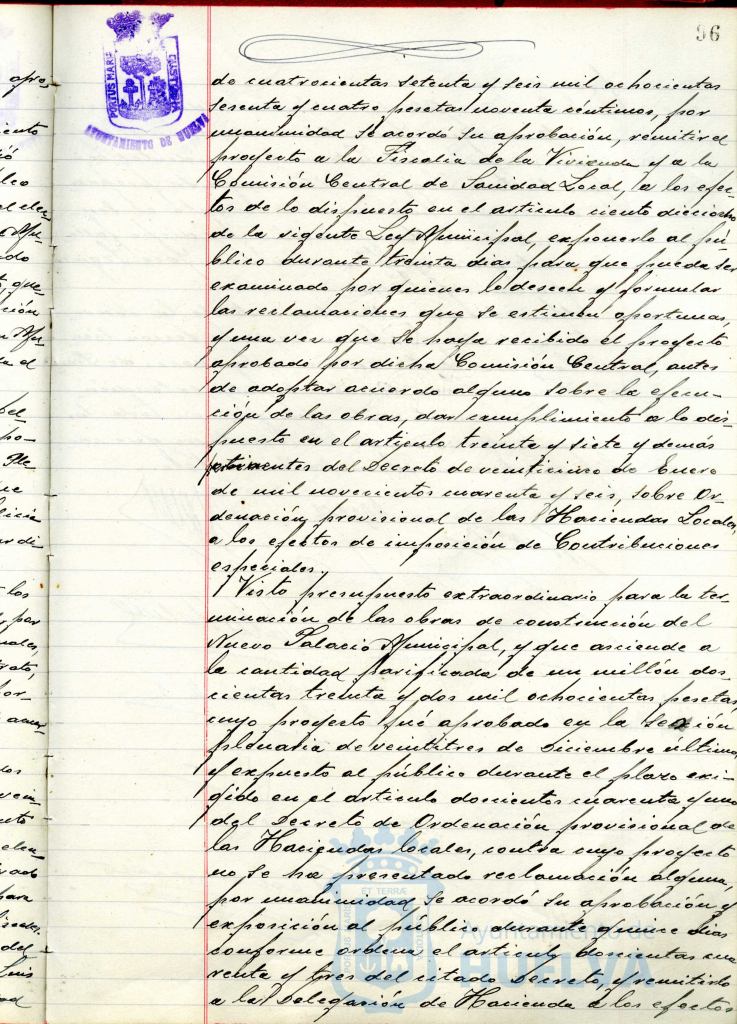 96
PORTUS MARIS
AYUNTAMIENTO DE HUELVA
de cuatrocientas setenta y seis mil ochocientas
sesenta y cuatro pesetas noventa céntimos, por
unanimidad se acordó su aprobación, remitir el
proyecto a la Fiscalia de la Vivienda y a la
Comisión Central de Sanidad Local, a los efec-
tos de lo dispuesto en el articulo ciento dieciocho
de la vigente Ley Municipal, exponerlo al pú-
blico durante treinta dias para que pueda ser
examinado por quienes lo deseen y formular
las reclamaciones que se estimen oportunas,
y una vez que se haya recibido el proyecto
aprobado por dicha Comisión Central, antes
de adoptar acuerdo alguno sobre la ejecu-
ción de las obras, dar cumplimiento a lo dis-
puesto en el articulo treinta y siete y demás
pertinentes del Decreto de veinticinco de Enero
de mil novecientos cuarenta y seis, sobre Or-
denación provisional de las Haciendas Locales,
a los efectos de imposición de Contribuciones
especiales.
Visto presupuesto extraordinario para la ter-
minación de las obras de construcción del
Nuevo Palacio Municipal, y que asciende a
la cantidad parificada de un millón dos-
cientas treinta y dos mil ochocientas pesetas,
cuyo proyecto fué aprobado en la sesión
plenaria de veintitres de Diciembre último,
y expuesto al público durante el plazo exi-
gido en el articulo doscientos cuarenta y uno
del Decreto de Ordenación provisional de
las Haciendas locales, contra cuyo proyecto
no se ha presentado reclamación alguna,
por unanimidad se acordó su aprobación y
exposición al público durante quince dias
conforme ordena el articulo doscientos cua
renta y tres del citado Decreto, y remitirlo
a la Delegación de Hacienda a los efectos
Ayuntamiento de
HUELVA